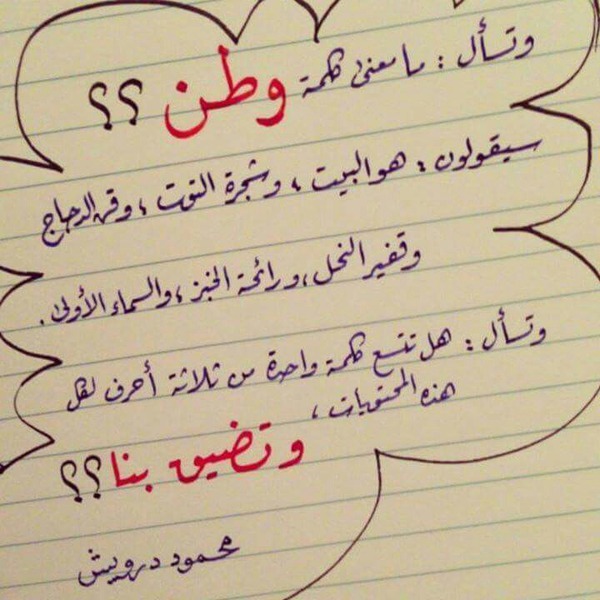 وتسأل : ما معنى كلمة وطن ؟؟
سيقولون : هو البيت ، وشجرة التوت ، وقن الدجاج
وقفير النحل ، ورائحة الخبز ، والسماء الأولى .
وتسأل : هل تتسع كلمة واحدة من ثلاثة أحرف لكل
هذه المحتويات ،
وتضيق بنا ؟؟
محمود درويش